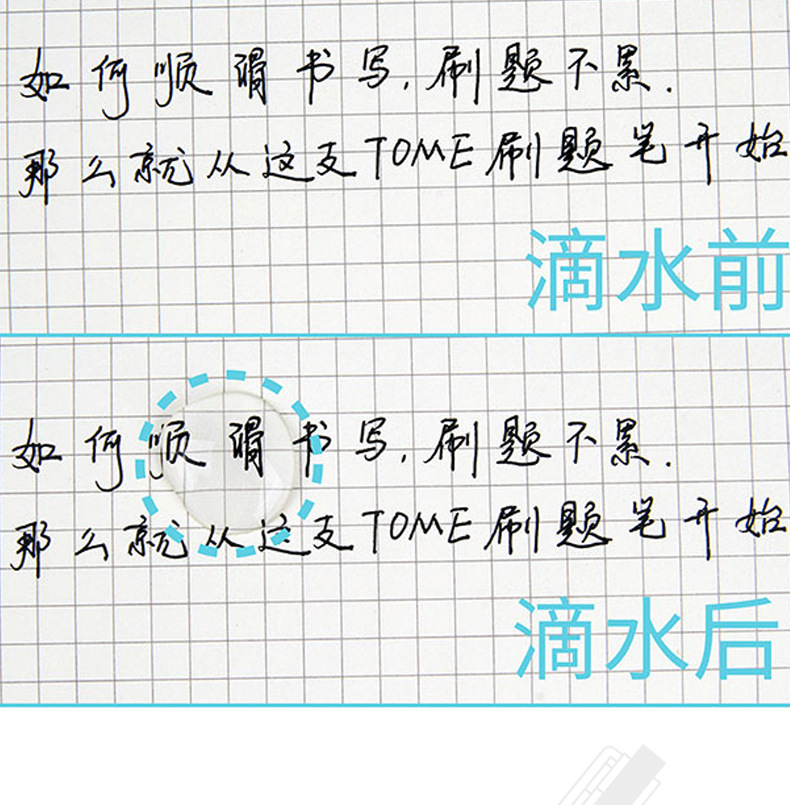 如何顺滑书写,刷题不累.
那么就从这支TOME刷题笔开始
滴水前
如何顺滑书写,刷题不累.
那么就从这支TOME刷题笔开始
滴水后